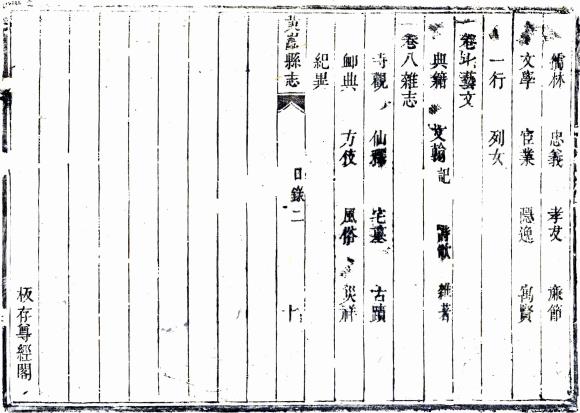 儒林 忠義 孝友 廉節
文學 宦業 隱逸 寓賢
一行 列女
卷七藝文
典籍 文翰 記 詩歌 雜著
卷八雜志
寺觀 仙釋 宅墓 古蹟
卹典 方伎 風俗 災祥
紀異
黃巖縣志 目錄二 十
板存尊經閣